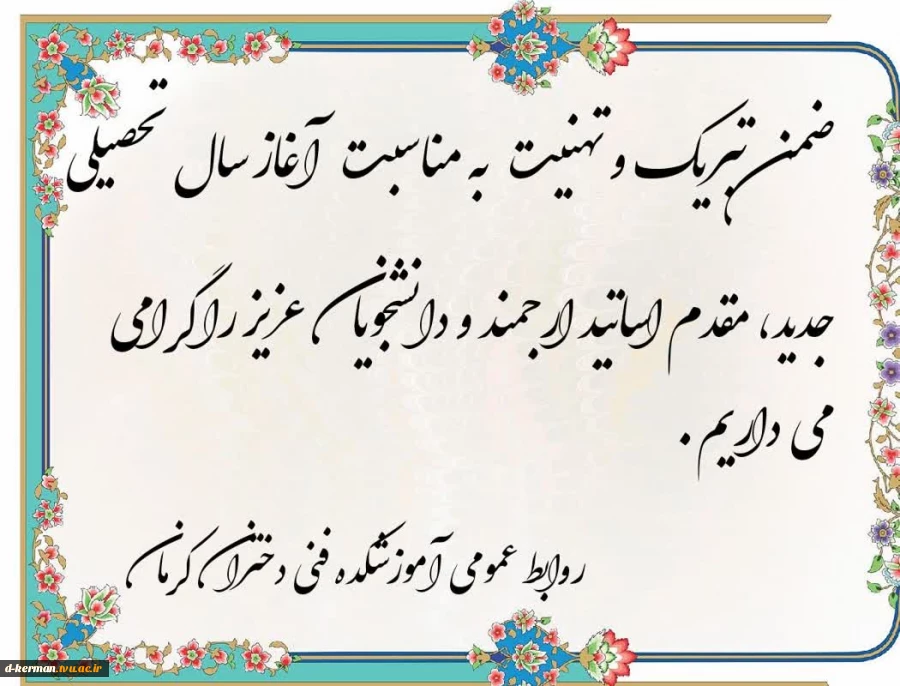 ضمن تبریک و تهنیت به مناسبت آغاز سال تحصیلی
جدید، مقدم اساتید ارجمند و دانشجویان عزیز را گرامی
می داریم .
روابط عمومی آموزشکده فنی دختران کرمان
d-kerman.tvu.ac.ir